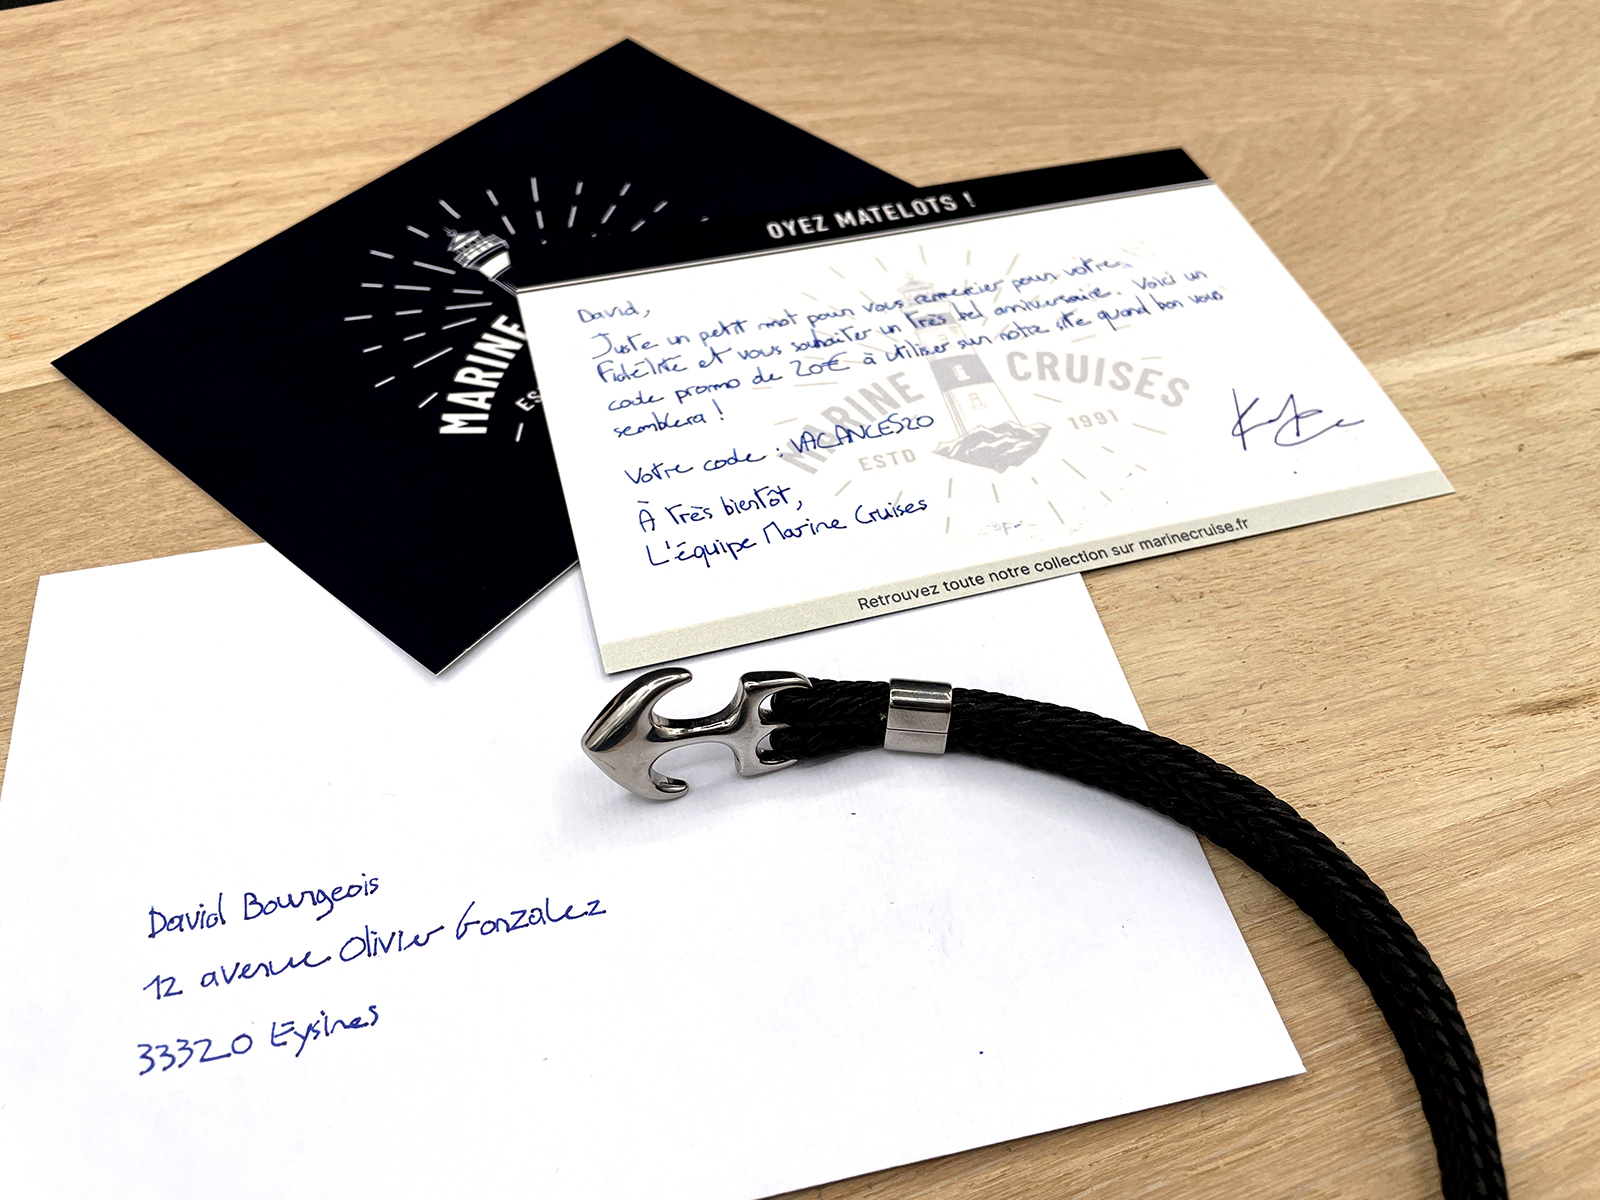 MARINE
ES
OYEZ MATELOTS !
David,
Juste un petit mot pour vous remercier pour votre
fidélité et vous souhaiter un très bel anniversaire. Voici un
code promo de 20€ à utiliser sur notre site quand bon vous
semblera !
Votre code : VACANCES20
À très bientôt,
L'équipe Marine Cruises
MARINE CRUISES
ESTD 1991
Retrouvez toute notre collection sur marinecruise.fr
David Bourgeois
12 avenue Olivier Gonzalez
33320 Eysines